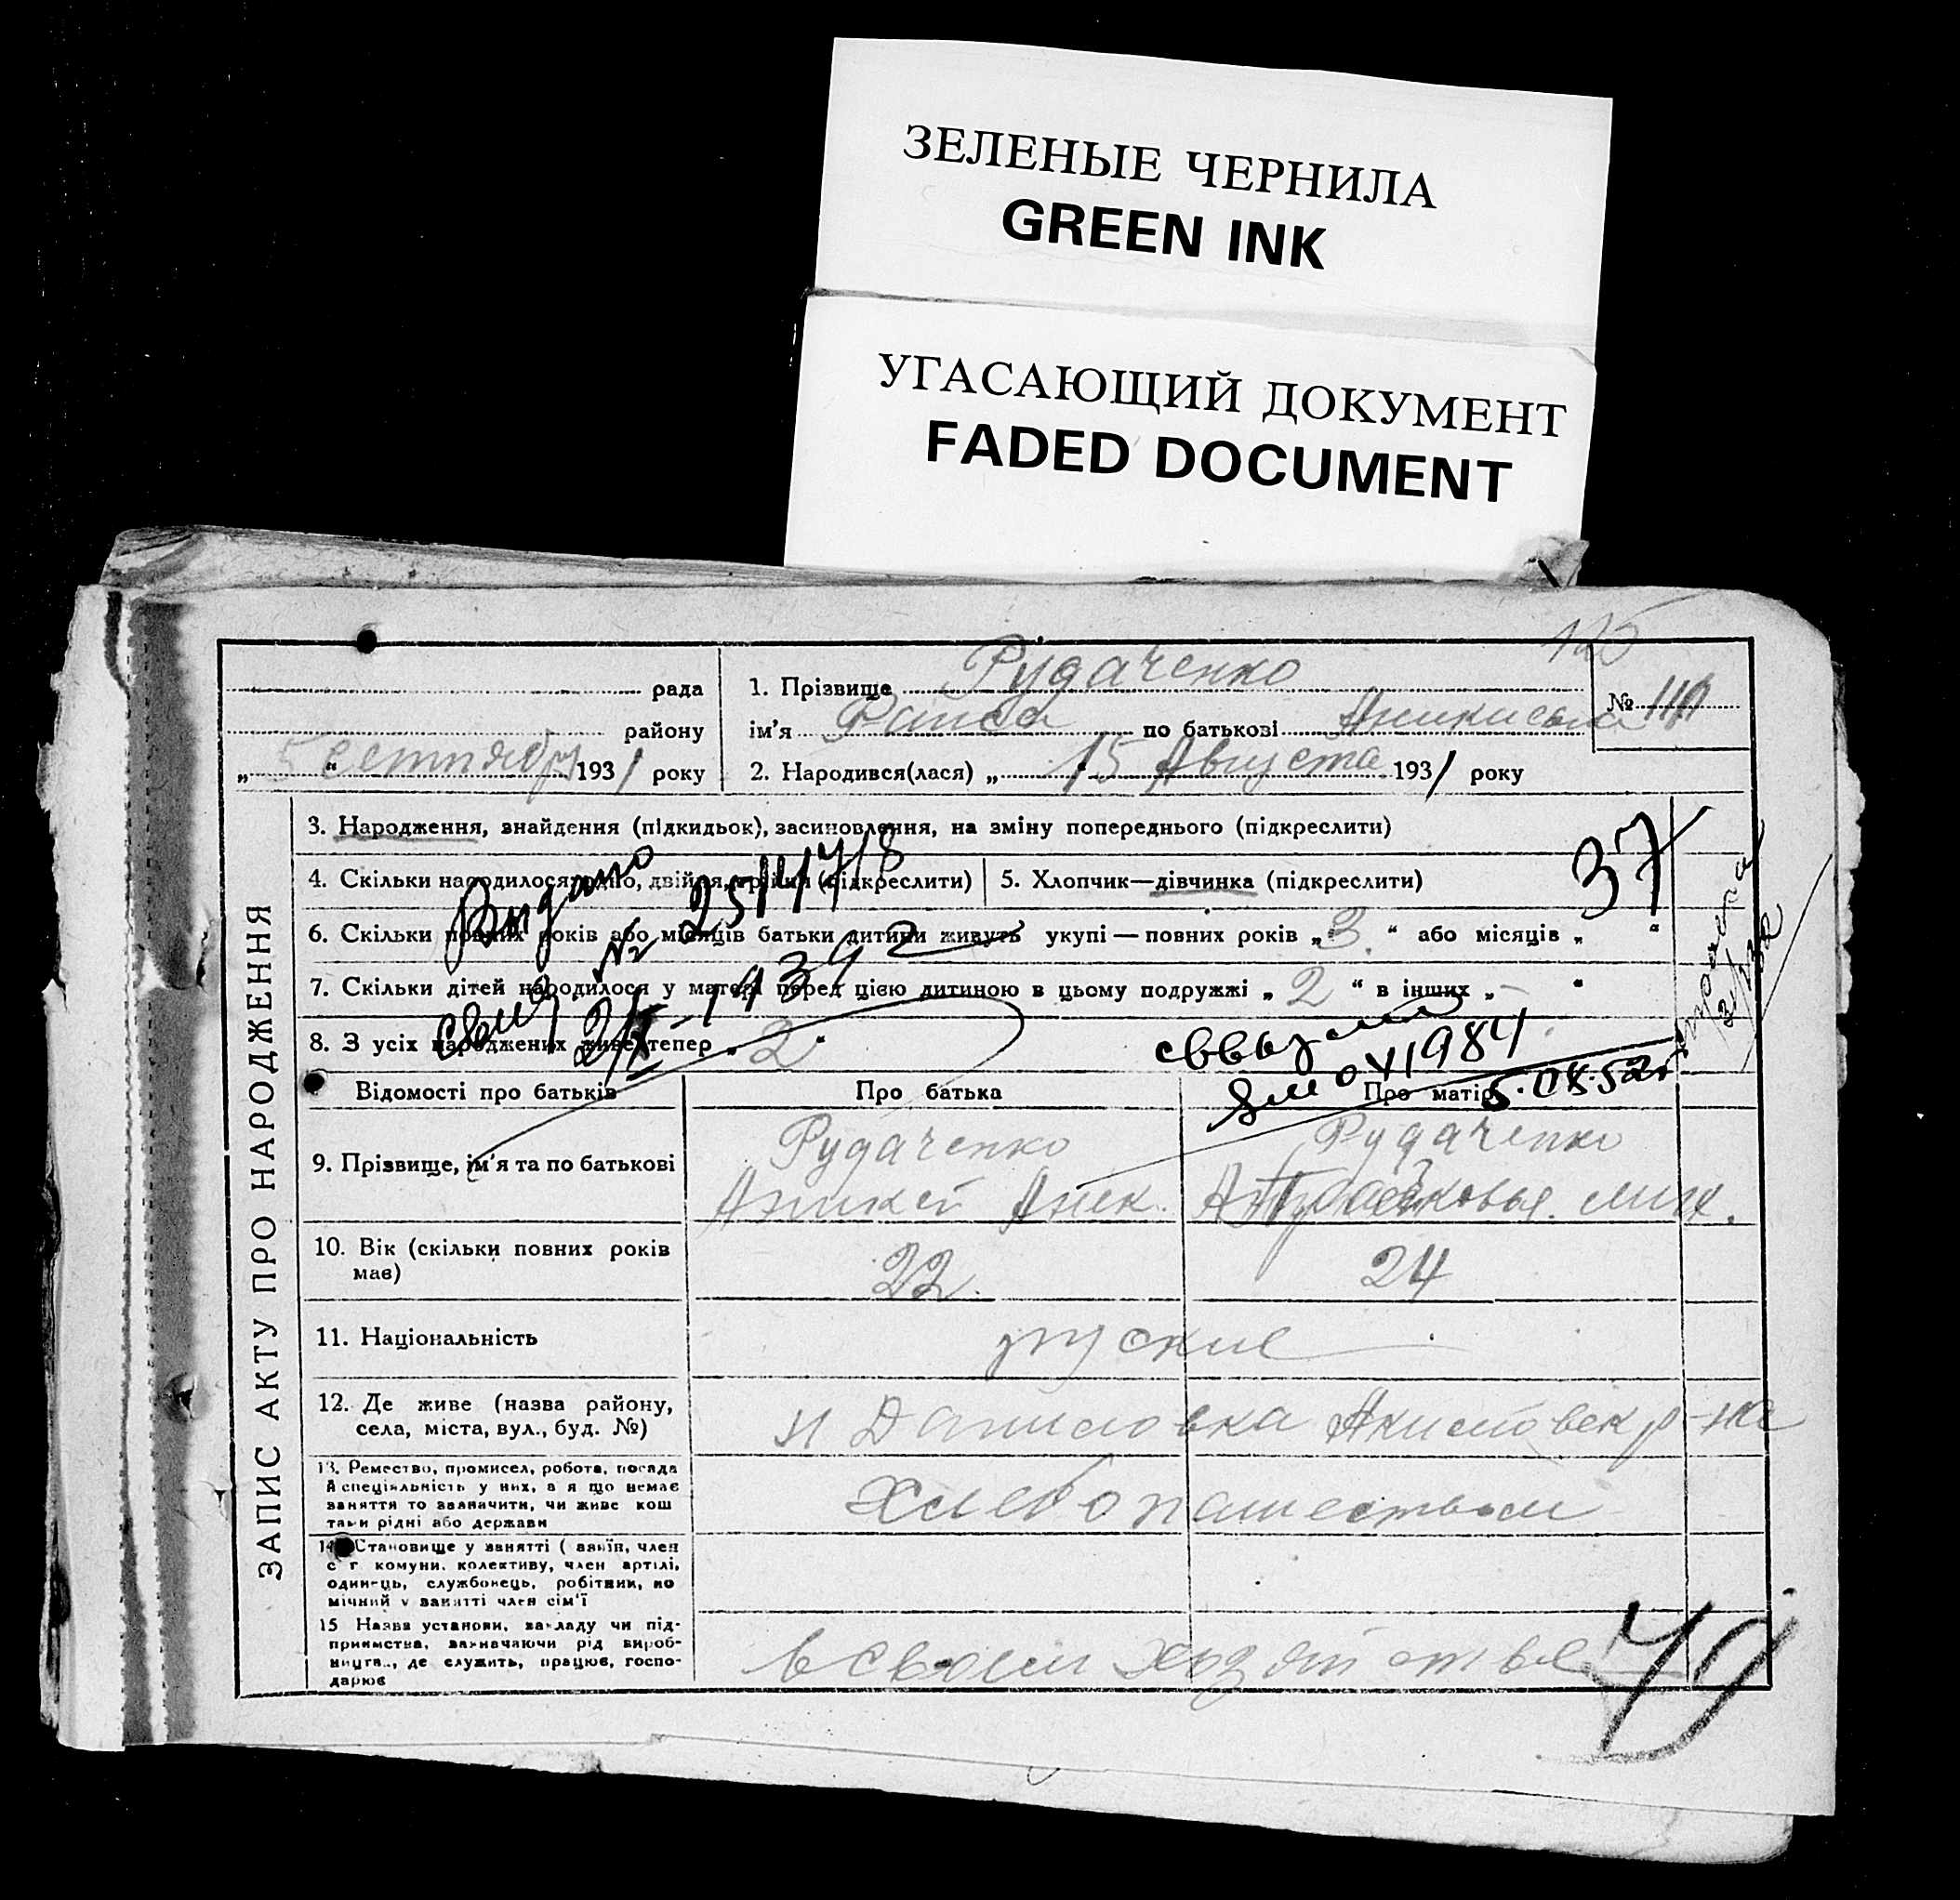 ЗЕЛЕНЫЕ ЧЕРНИЛА
GREEN INK
УГАСАЮЩИЙ ДОКУМЕНТ
FADED DOCUMENT
125
рада
1. Прізвище Рудаченко
№ 119
району
ім'я Раиса по батькові
„ 5 " сентября 1931 року
2. Народився(лася) „ 15 Августа 1931 року
ЗАПИС АКТУ ПРО НАРОДЖЕННЯ
3. Народження, знайдення (підкидьок), засиновлення, на зміну попереднього (підкреслити)
4. Скільки народилося: одно, двійня, трійня (підкреслити)
5. Хлопчик—дівчинка (підкреслити)
37
6. Скільки повних років або місяців батьки дитини живуть укупі — повних років „ 3 " або місяців „ "
7. Скільки дітей народилося у матері перед цією дитиною в цьому подружжі „ 2 " в інших „ - "
8. З усіх народжених живе тепер „ 2 "
Видано
№ 25/14718
1939 г
5.IX.52г
Відомості про батьків
Про батька
Про матір
9. Прізвище, ім'я та по батькові
Рудаченко
Рудаченко
Аникей
10. Вік (скільки повних років має)
22
24
11. Національність
руские
12. Де живе (назва району, села, міста, вул., буд. №)
Даниловка Акимовск р-на
13. Ремество, промисел, робота, посада
й спеціяльність у них, а я що немає
заняття то зазначити, чи живе кош
тами рідні або держави
Хлебопашеством
14. Становище у занятті ( аяїн, член
с г комуни, колективу, член артілі,
одинець, службовець, робітник, по
мічний у занятті член сім'ї
15 Назва установи, закладу чи під-
приємства, зазначаючи рід вироб-
ництв., де служить, працює, госпо-
дарює
в своем хозяйстве
79